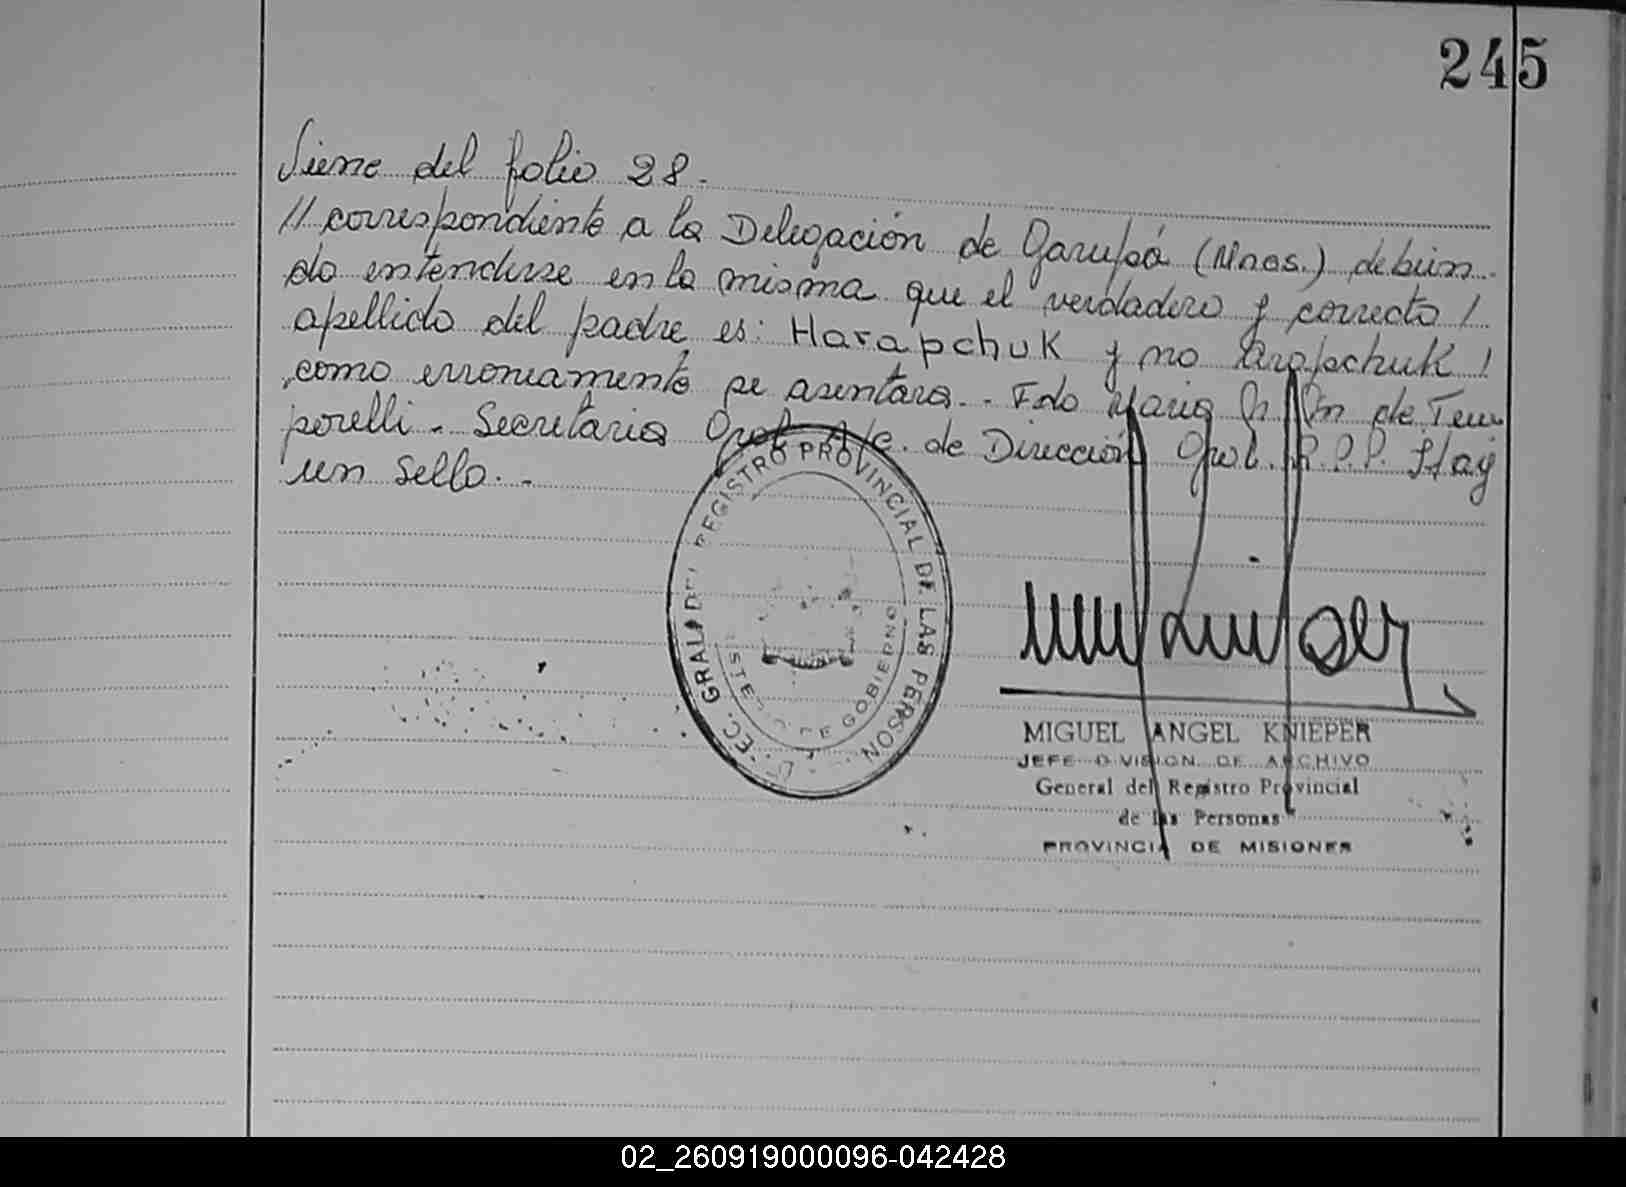 245
Viene del folio 28.
// correspondiente a la Delegación de Garupá (Mnes.) debien-
do entenderse en la misma que el verdadero y correcto /
apellido del padre es: Harapchuk y no Arapchuk /
como erroneamente se asentara.- Fdo Maria de Tem
porelli - Secretaria Gral. A/c. de Dirección Gral. R.P.P. Hay
un sello. -
GRAL. DEL REGISTRO PROVINCIAL DE LAS PERSON
DE GOBIERNO
MIGUEL ANGEL KNIEPER
JEFE DIVISION DE ARCHIVO
General del Registro Provincial
de las Personas
PROVINCIA DE MISIONES
02_260919000096-042428